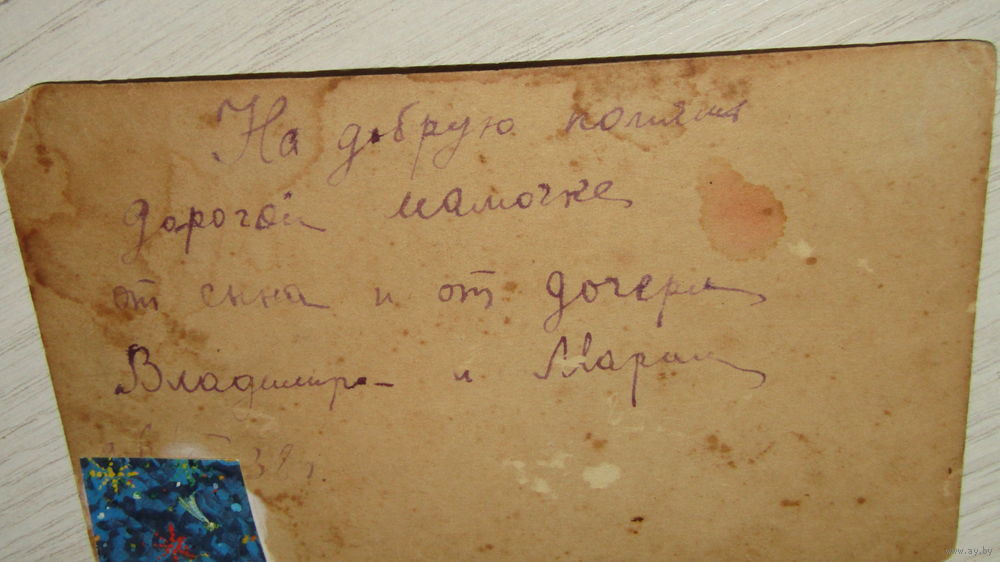 На добрую память
дорогой мамочке
от сына и от дочери
Владимира и Марии
39
www.ay.by